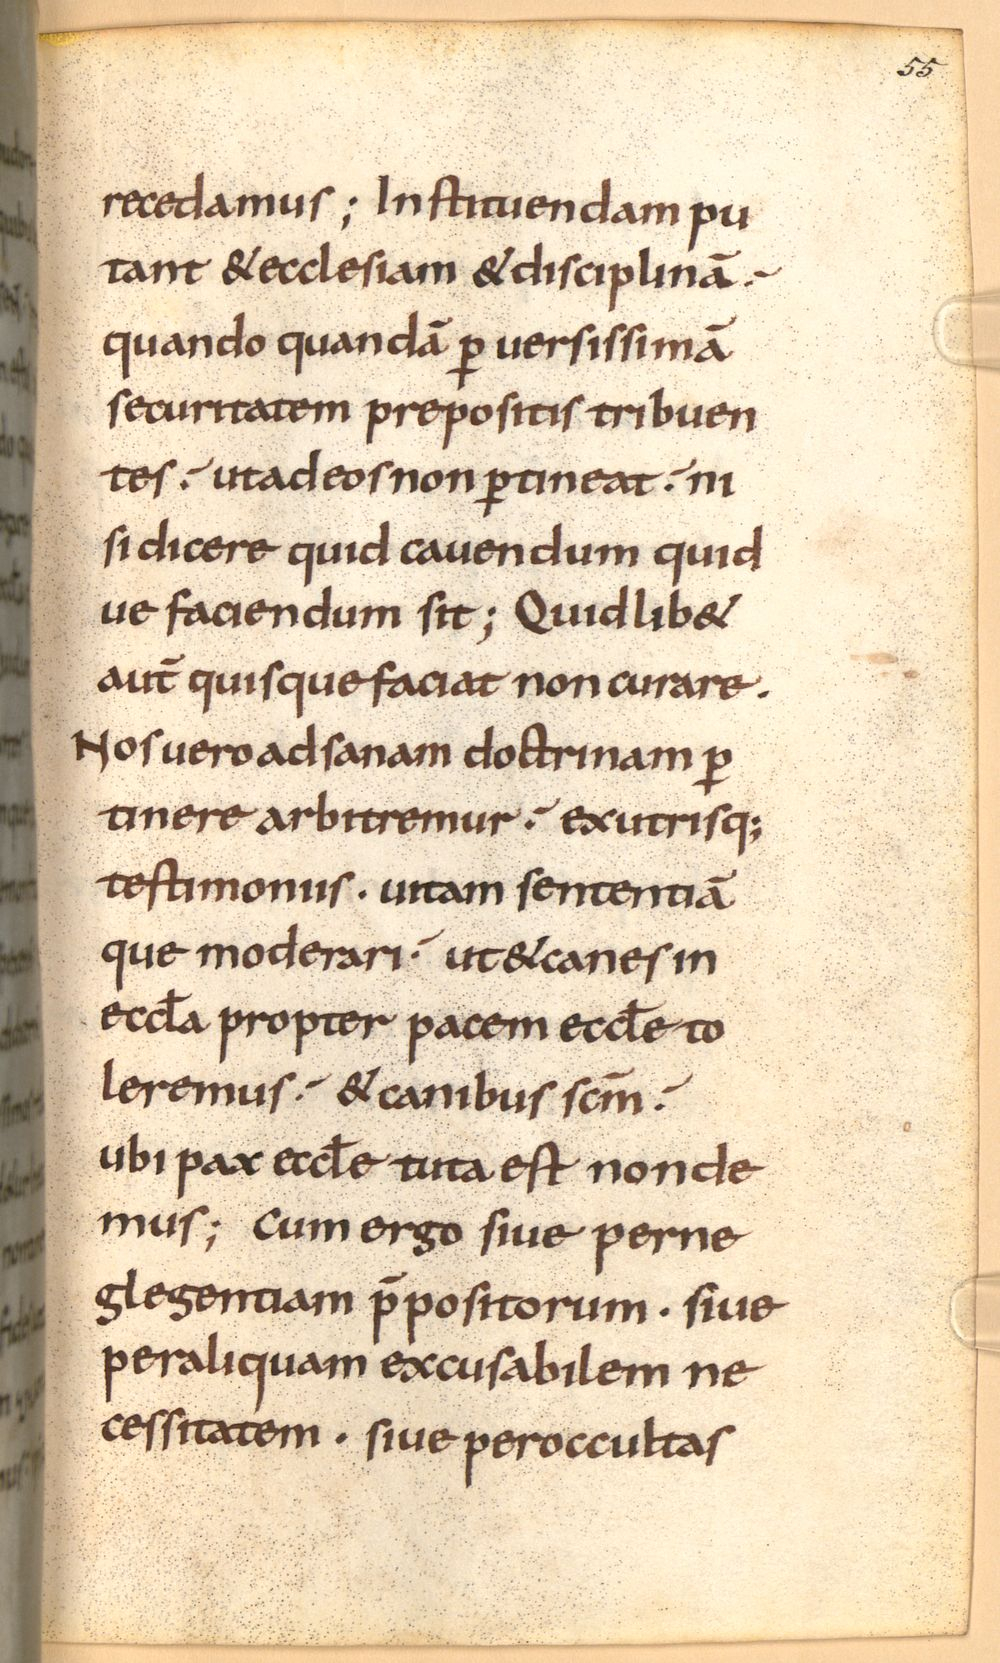 55
recedamus ; Instituendam pu
tant & ecclesiam & disciplinā .
quando quandā ꝑ uersissimā
securitatem prepositis tribuen
tes . ut ad eos non ꝑtineat . ni
si dicere quid cauendum quid
ue faciendum sit ; Quid lib&
aut̄ quisque faciat non curare .
Nos uero ad sanam doctrinam ꝑ
tinere arbitremur . ex utrisq;
testimoniis . uitam sententiā
que moderari . ut & canes in
eccła propter pacem eccłe to
leremus . & canibus scm̄ .
ubi pax eccłe tuta est non de
mus ; Cum ergo siue per ne
glegentiam p̄positorum . siue
per aliquam excusabilem ne
cessitatem . siue per occultas